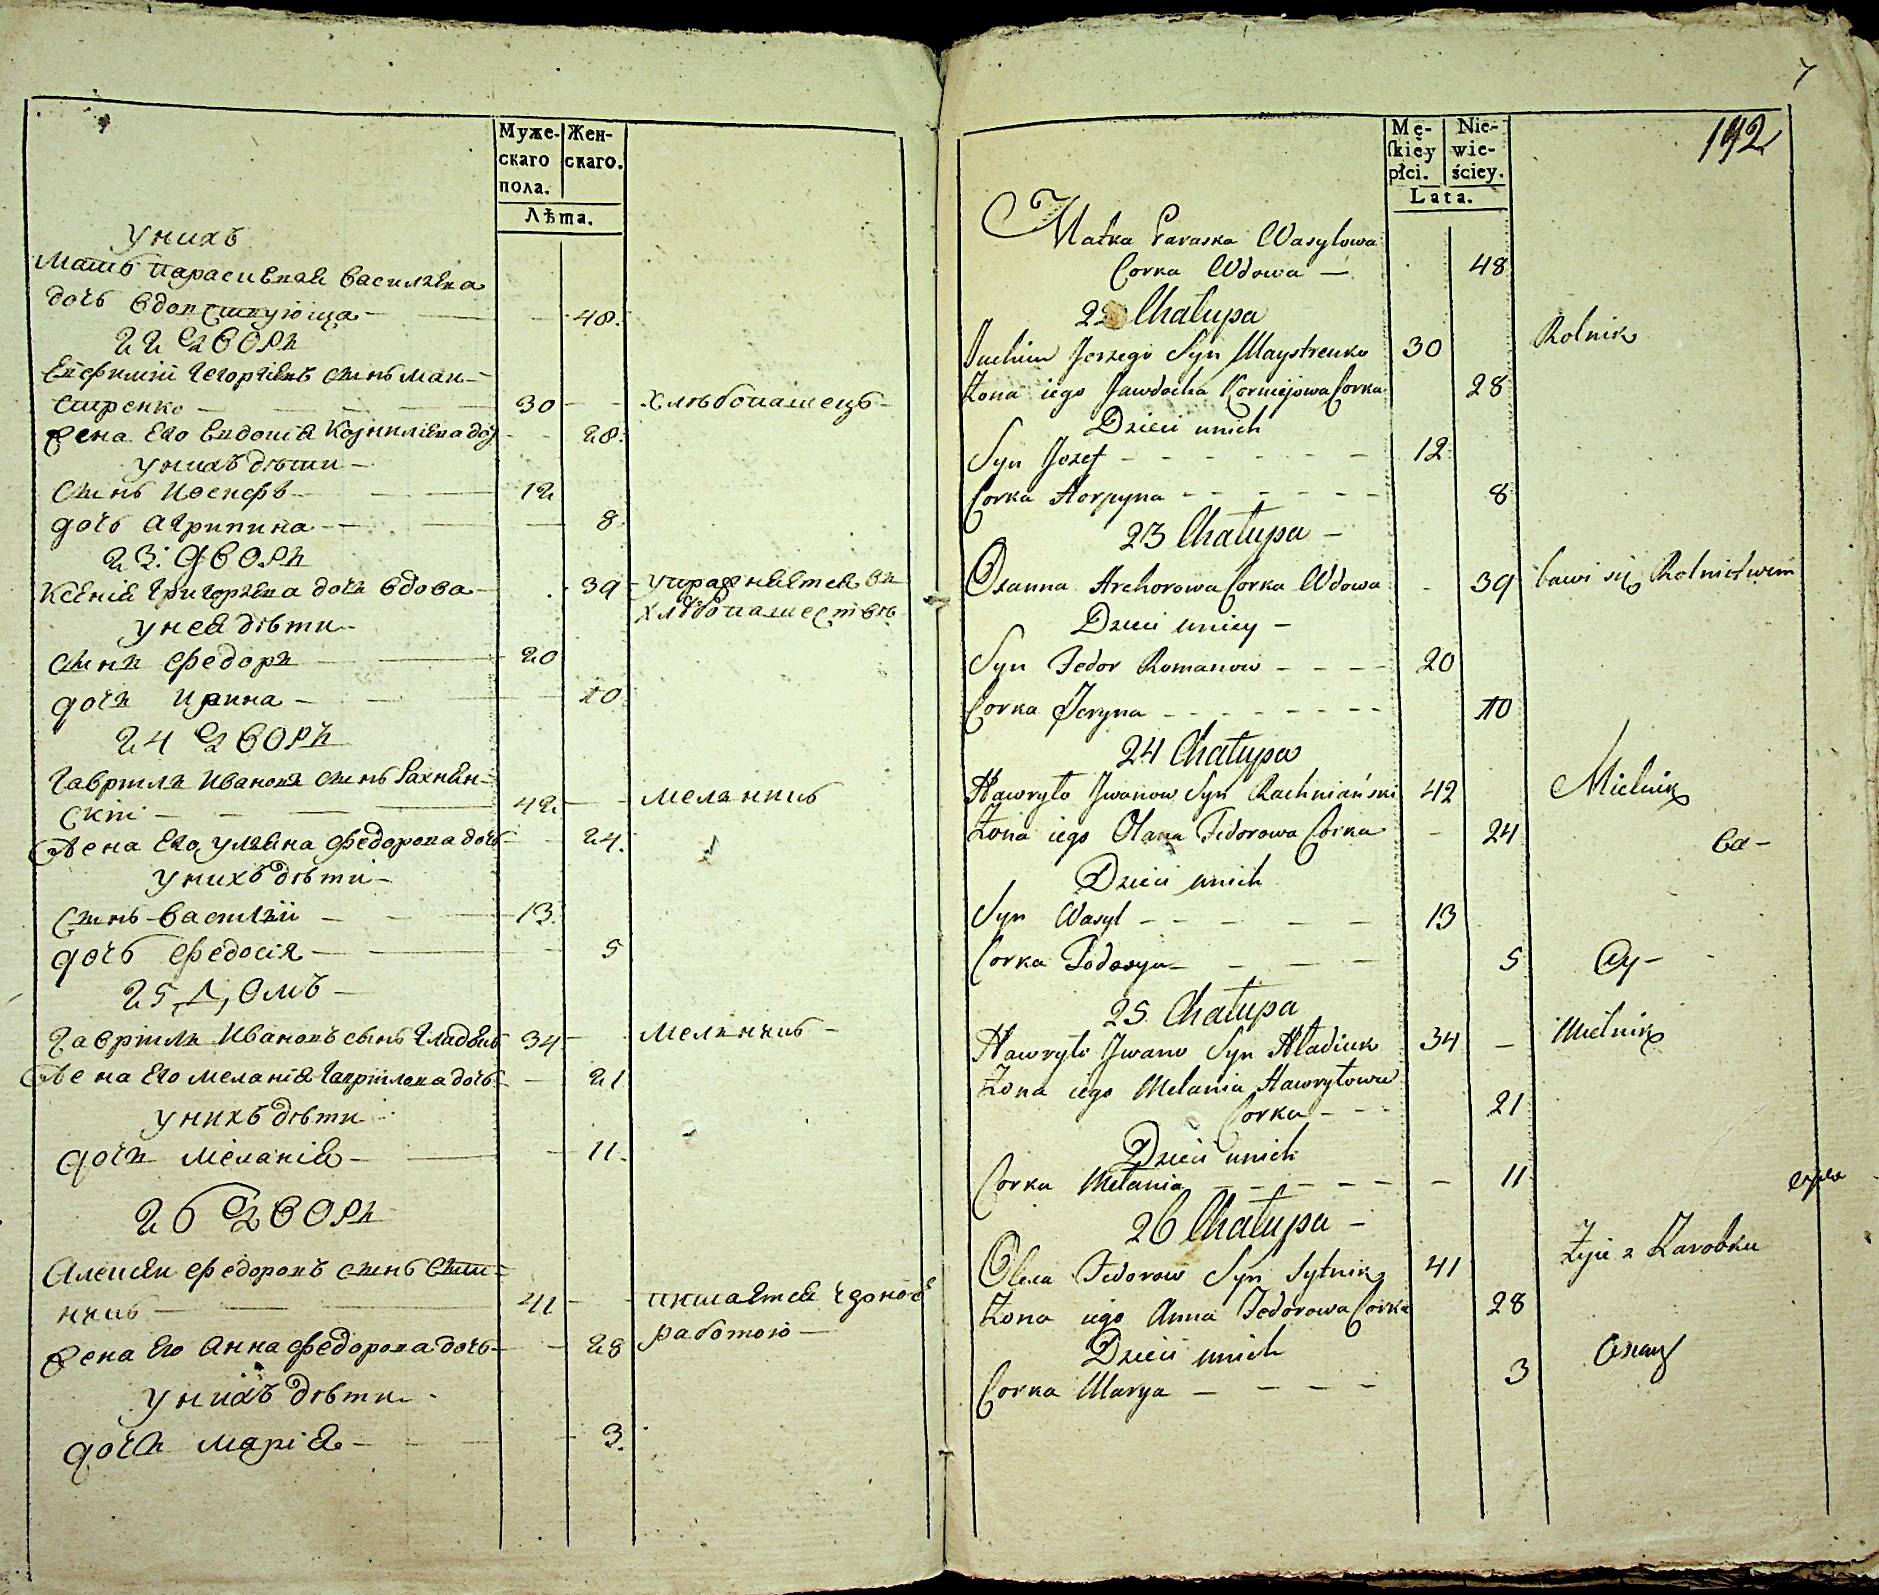 Муже-
скаго
пола.
Жен-
скаго.
Лѣта.
у нихъ
Мать Параскевая Василѣва
дочь вдовствующа 48.
22 дворъ
Евфимій Георгіевъ сынъ Маи-
стренко 30 хлѣбопашецъ
Жена его Евдокія Корниліева доч 28.
у нихъ дѣти
сынъ Иосифъ 12
дочь Агрипина 8
23: дворъ
Ксенія Григорьева дочь вдова 39 упражняется въ
хлѣбопашествѣ
у нея дѣти
сынъ Федоръ 20
дочь Ирина 10
24 дворъ
Гаврило Ивановъ сынъ Рахнян-
скій 42 мельникъ
Жена его Ульяна Федорова дочь 24.
у нихъ дѣти
сынъ Василій 13
дочь Федосія 5
25 Домъ
Гаврило Ивановъ сынъ Гладкій 34 мельникъ
Жена его Меланія Гаврилова дочь 21
у нихъ дѣти
дочь Меланія 11.
26 дворъ
Алексѣй Федоровъ сынъ Сыт-
никъ 41 питается
работою
Жена его Анна Федорова дочь 28
у нихъ дѣти
дочь Марія 3.
7
142
Mę-
skiey
płci.
Nie-
wie-
ściey.
Lata.
Matka Paraska Wasylowa
Corka Wdowa 48
22 Chałupa
Juchim Jerzego Syn Maystrenko 30 Rolnik
Żona iego Jawdocha Korniejowa Corka 28
Dzieci unich
Syn Jozef 12
Corka Horpyna 8
23 Chałupa
Oxanna Hrehorowa Corka Wdowa 39 bawi się Rolnictwem
Dzieci uniey
Syn Fedor Romanow 20
Corka Jeryna 10
24 Chałupa
Hawryło Jwanow Syn Rachniański 42 Mielnik
Żona iego Olana Fedorowa Corka 24
Dzieci unich
Syn Wasyl 13
Corka Fodosya 5
25 Chałupa
Hawryło Jwanow Syn Hładiuk 34 Mielnik
Żona iego Melania Hawryłowa
Corka 21
Dzieci unich
Corka Melania 11
26 Chałupa
Olexa Fedorow Syn Sytnik 41 Żyie z Zarobku
Żona iego Anna Fedorowa Corka 28
Dzieci unich
Corka Marya 3